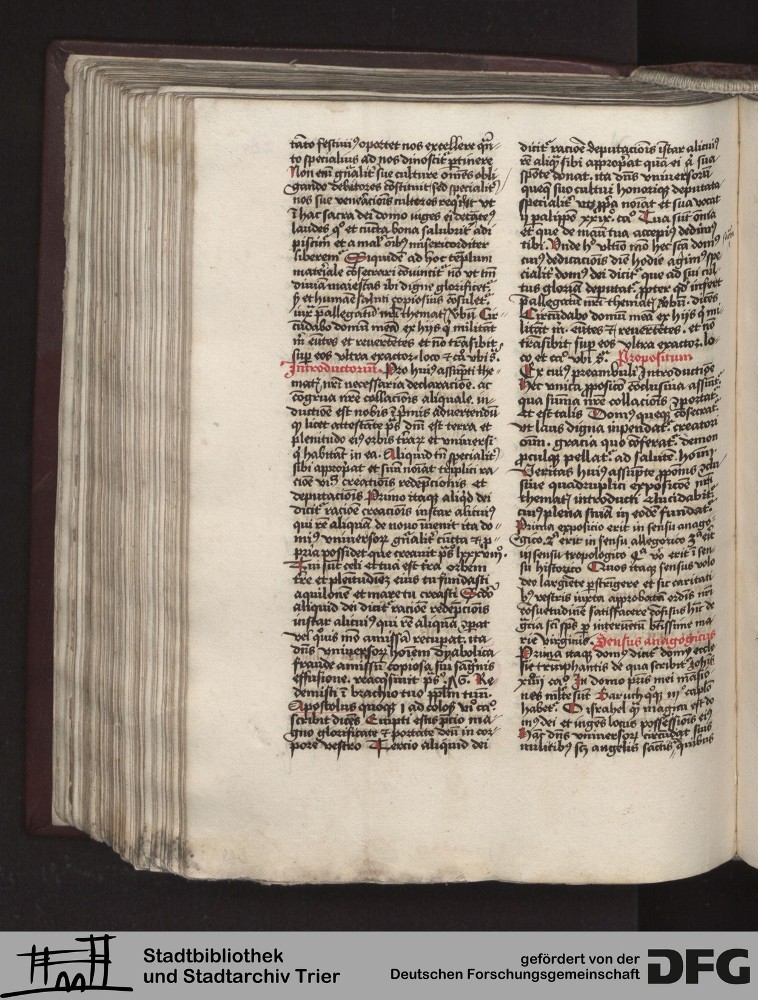 tāto festiui⁹ oportet nos excellere q̄n
to specialius ad nos dinoscit̄ p̄tinere
Non em̄ gn̄alit̄ sue culture om̄es obli
gando debitores cōstituit sed specialit̄
nos sue ven̄acionis cultores req̄rit vt
ī hac sacra dei domo
laudes q᷒ et cūcta bona salubrit̄ adi
piscim̄ et a mal᷒ oīb᷒ misericorditer
liberem̄ Siquidem ad hoc templum
materiale cōsecrari cōuincit̄ nō vt tm̄
diuina maiestas ibi digne glorificet̄
s᷒ et humāe saluti copiosius cōsulet̄
iux͛ p̄allegatū nr̄i themat᷒ v̄bū Cir
cūdabo domū meā ex hijs q̄ militāt
m̄ eūtes et reuertētes et nō trāsibit
sup̄ eos vltra exactor. loco & c̄a vbi s̄.
Introductoriū. Pro hui᷒ assūpti the
mat᷒ nr̄i necessaria declaracōe. ac
cōgrua nr̄e collacōnis aliquale. in
ductiōe est nobis ī p̄mis aduertendū
q᷒ licet attestāte p̄s dm̄ est terra et
plenitudo ei᷒ orbis trar̄ et vniuersi
q̄ habitāt in ea. Aliquid tn̄ specialit̄
sibi app̄op̄at et suū noīat triplici ra
cōe vi᷒ creationis redēpcionis et
deputacōis Primo itaq᷒ aliqd dei
dicit̄ racōe creacōis instar alicui᷒
qui rē aliquā de nouo īuenit ita do
mi᷒ vniuersor̄ gn̄alit̄ cūcta & p̄
pria possidet que creauit p̄s lxxxviij.
Tui sūt celi et tua est tr̄a. orbem
tr̄e et plenitudinē eius tu fundasti
aquilonē et mare tu creasti Scd̄o
aliquid dei dicit̄ racōe redēpcōis
instar alicui᷒ qui rē aliquā. 
vel q᷒uis mō amissā recup̄at. ita
dn̄s vniuersor̄ hoīem dyabolica
fraude amissū copiosa sui sāgnis
effusione. reacq̄siuit p̄s. Re
demisti ī brachio tuo pp̄lm tuū.
Apostolus quoq᷒ I ad
scribit dicēs Empti estis p̄cio ma
gno glorificate & portate deū in cor
pore vestro Tercio aliquid dei
dicit̄ racōe deputacōis īstar alicui᷒
rē aliq̄ sibi app̄op̄at quā ei q̄ sua
spōte donat. ita dn̄s vniuersorū
queq᷒ suo cultui honoriq᷒ deputata
specialit̄ vt p̄p̄a noīat et sua vocat
ij palippo xxix. ca᷒ Tua sūt oīa
et que de manu tua accepi᷒ dedim᷒
tibi. Vnde h᷒ vltīo mō hec scā dom᷒
cui᷒ dedicacōis diē hodie agim᷒ spe
cialit̄ dom᷒ dei dicit̄ que ad sui cul
tus gloriā deputat̄. p̄pter qd īnfert
p̄allegatū nr̄i themat᷒ v̄bū. dicēs
Circūdabo domū meā ex hijs q̄ mi
litāt m̄. eūtes & reuertētes. et nō
trāsibit sup̄ eos vltra exactor. lo
co et cā vbi s̄. Propositum
Ex cui᷒ preambuli Introductiōe
Hec vnica p̄posicō cōclusiua assūit̄
qua sūma nr̄e collacōis ꝓportat̄
Et est talis Dom᷒ queq᷒ cōsecrat̄
vt laus digna īpendat̄. creatori
om̄. gracia quo cōferat̄. demon
p̄culq᷒ pellat̄. ad salutē hom̄i
Veritas hui᷒ assūpte p̄pōnis
siue quadruplici exposicōe nr̄i
themat᷒ introducti elucidabit̄.
cui᷒ plena s̄nīa in eodē fundat̄.
Prima exposicio erit in sensu anago
gico. 2ᵃ erit in sensu allegorico 3ᵃ erit
in sensu tropologico 4ᵃ v̄o erit ī sen
su historico Quos itaq᷒ sensus volo
deo largiēte p̄stringere et sic caritati
b᷒ vestris iuxta approbatā ordīs nr̄i
cōsuetudinē satisfacere cōfisus hui᷒ de
gr̄cia sc̄i sp̄s p̄ interuētū btissime ma
rie virginis. Sensus anagogicus
Prima itaq᷒ dom᷒ dicit̄ dom᷒ eccle
sie triūphantis de qua scribit̄ Joh̄is
xiiij ca᷒. In domo pris mei māsio
nes ml̄te sūt Baruch q᷒q᷒ iij᷒ caplo
habet̄. O israhel q̄ magna est do
m᷒ dei et ingēs locus possessiōis ei᷒
Hāc dn̄s vniuersor̄ circūdat suis
militib᷒ scȝ angelis sāctis quibus
Stadtbibliothek
und Stadtarchiv Trier
gefördert von der
Deutschen Forschungsgemeinschaft
DFG